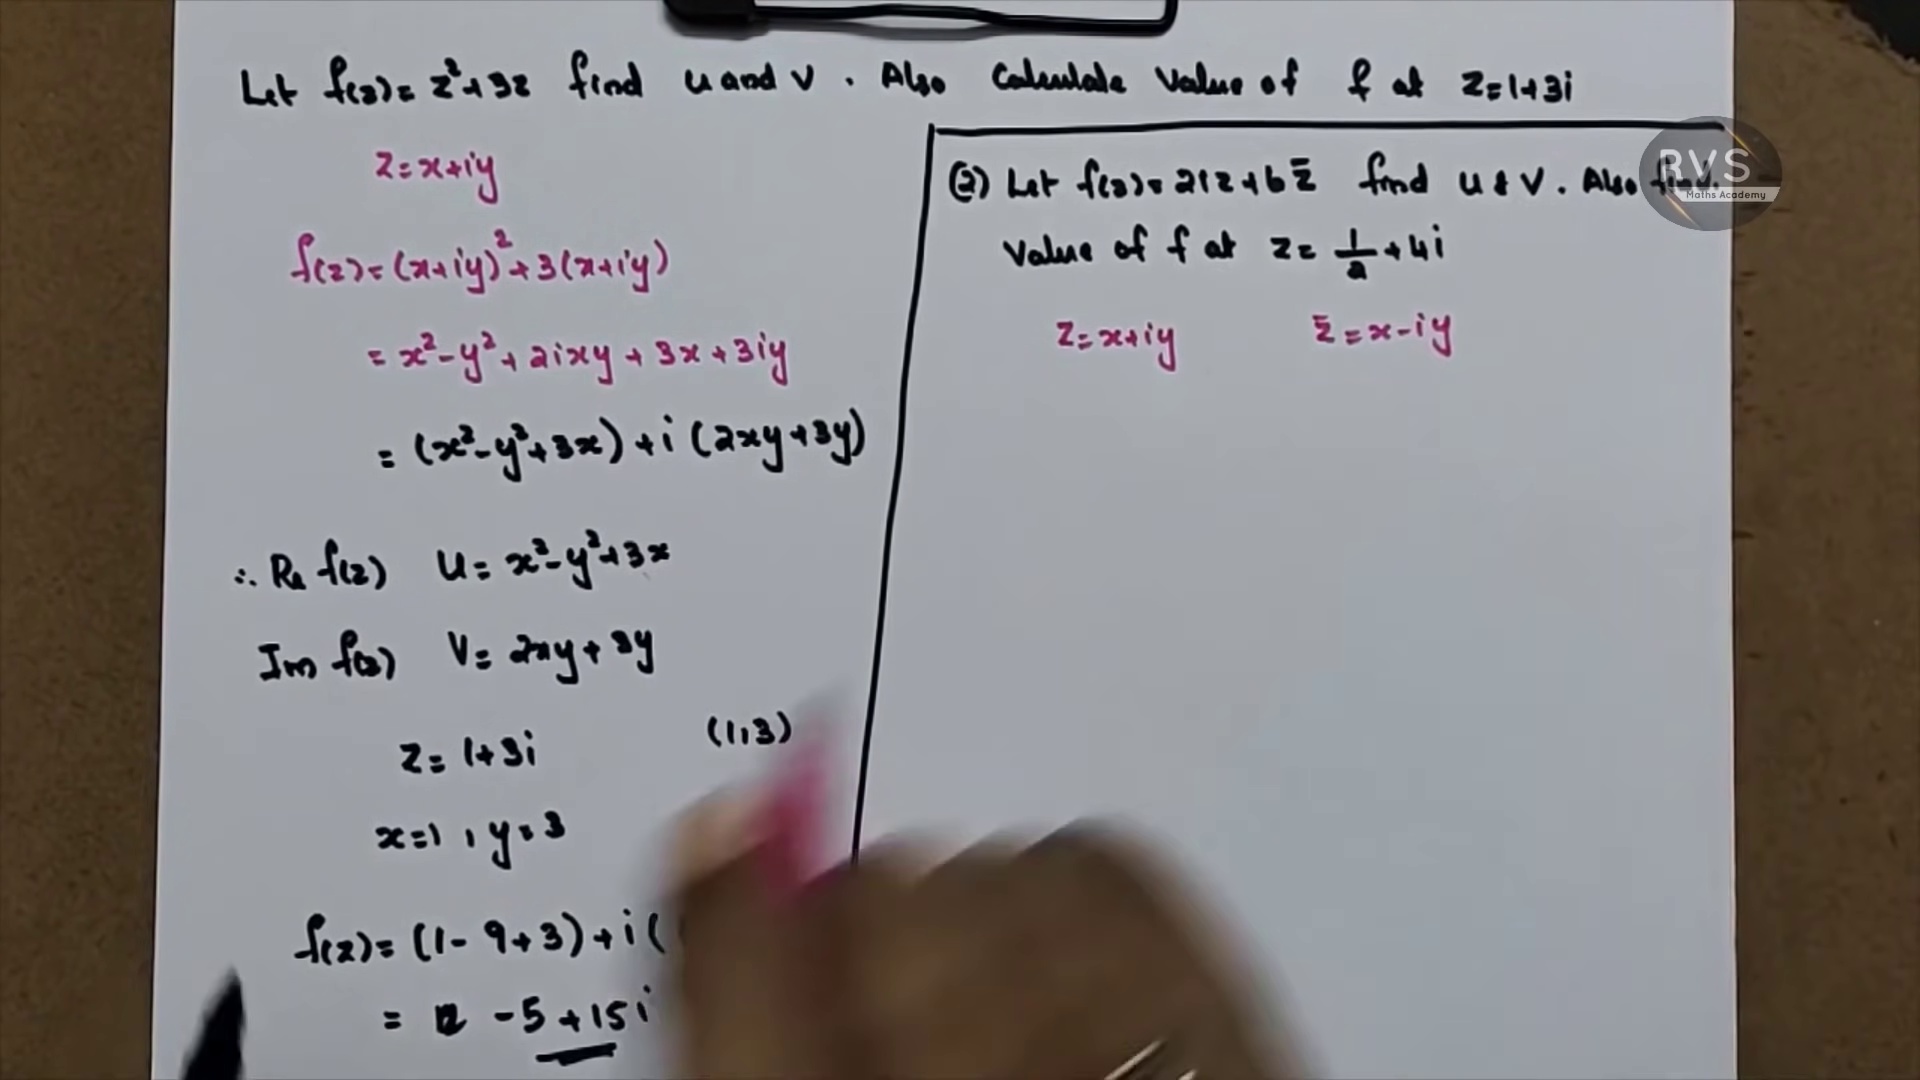 Let f(z) = z² + 3z find u and v. Also Calculate Value of f at z = 1+3i
z = x+iy
f(z) = (x+iy)² + 3(x+iy)
= x² - y² + 2ixy + 3x + 3iy
= (x² - y² + 3x) + i (2xy + 3y)
∴ Re f(z) u = x² - y² + 3x
Im f(z) v = 2xy + 3y
z = 1+3i (1,3)
x=1, y=3
f(z) = (1-9+3) + i (
= -5+15i
(2) Let f(z) = 2iz + 6z̄ find u & v. Also find
Value of f at z = 1/2 + 4i
z = x+iy z̄ = x-iy
RVS
Maths Academy